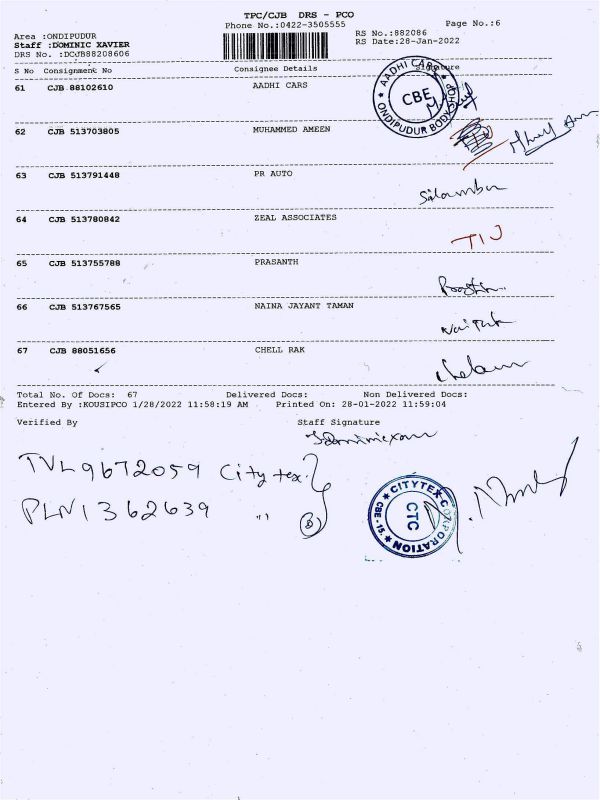 TPC/CJB DRS - PCO
Phone No.:0422-3505555
Page No.:6
Area :ONDIPUDUR
RS No.:882086
Staff :DOMINIC XAVIER
RS Date:28-Jan-2022
DRS No. :DCJB88208606
S No Consignment No Consignee Details Signature
61 CJB 88102610 AADHI CARS
AADHI CARS
CBE
BODY SHOP
ONDIPUDUR
62 CJB 513703805 MUHAMMED AMEEN
63 CJB 513791448 PR AUTO
Silambu
64 CJB 513780842 ZEAL ASSOCIATES
TIJ
65 CJB 513755788 PRASANTH
66 CJB 513767565 NAINA JAYANT TAMAN
67 CJB 88051656 CHELL RAK
Total No. Of Docs: 67 Delivered Docs: Non Delivered Docs:
Entered By :KOUSIPCO 1/28/2022 11:58:19 AM Printed On: 28-01-2022 11:59:04
Verified By Staff Signature
TVL9672059 City tex
PLN1362639 "
CITYTEX CORPORATION
CTC
CBE-15.